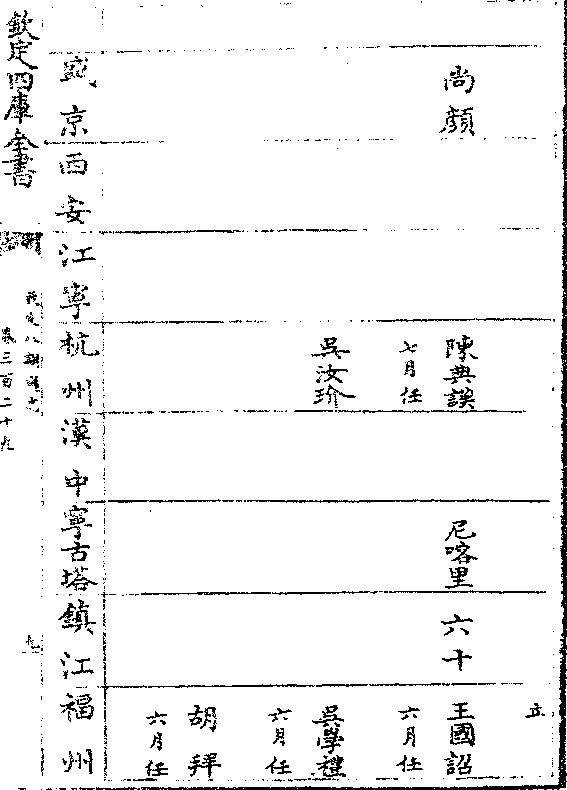 尚顔
陳典謨
尼喀里
六十
王國詔
七月任
六月任
吳汝玠
吳學禮
六月任
胡拜
六月任
盛京
西安
江寧
杭州
漢中
寧古塔
鎮江
福州
欽定四庫全書
欽定八旗通志
卷三百二十九